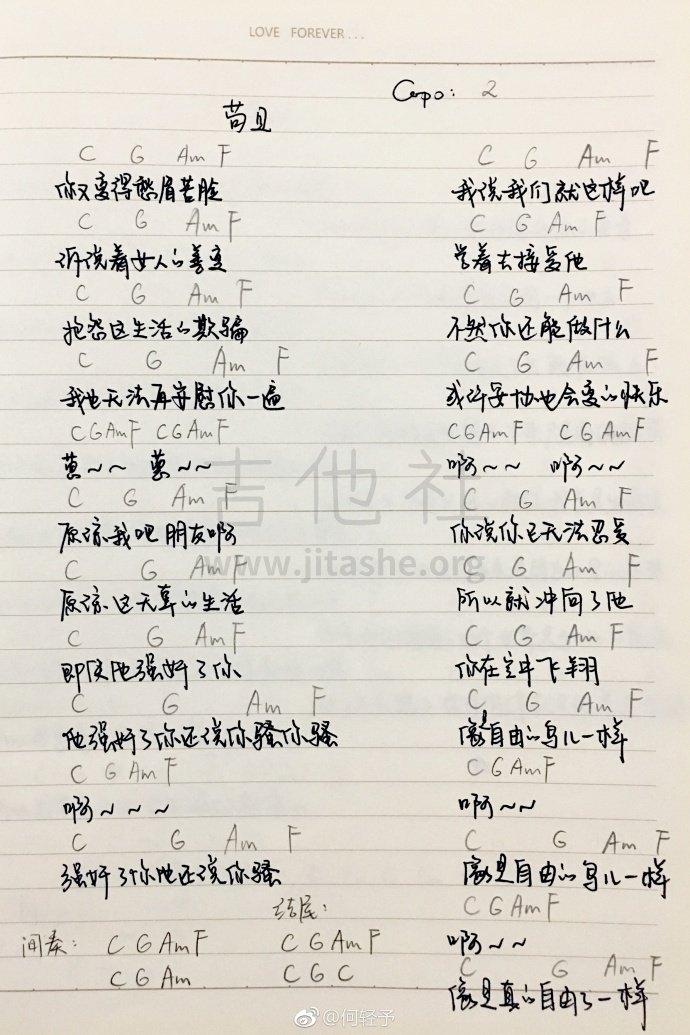 LOVE FOREVER...
Capo: 2
苟且
C G Am F
你又变得愁眉苦脸
C G Am F
诉说着女人的善变
C G Am F
抱怨这生活的欺骗
C G Am F
我也无法再安慰你一遍
CGAmF CGAmF
C G Am F
原谅我吧朋友啊
C G Am F
原谅这无辜的生活
C G Am F
即使他强奸了你
C G Am F
他强奸了你还说你骚你骚
C G Am F
啊~ ~ ~
C G Am F
强奸了你他还说你骚
间奏: C G Am F
C G Am
结尾:
C G Am F
C G C
C G Am F
我说我们就这样吧
C G Am F
学着去接受他
C G Am F
不然你还能做什么
C G Am F
或许妥协也会变的快乐
CGAmF CGAmF
啊~~ 啊~~
C G Am F
你说你已无法忍受
C G Am F
所以就冲向了他
C G Am F
你在空中飞翔
C G Am F
像自由的鸟儿一样
C G Am F
啊~~
C G Am F
像是自由的鸟儿一样
C G Am F
啊~~
C G Am F
像是真的自由了一样
吉他社
www.jitashe.org
@何轻予